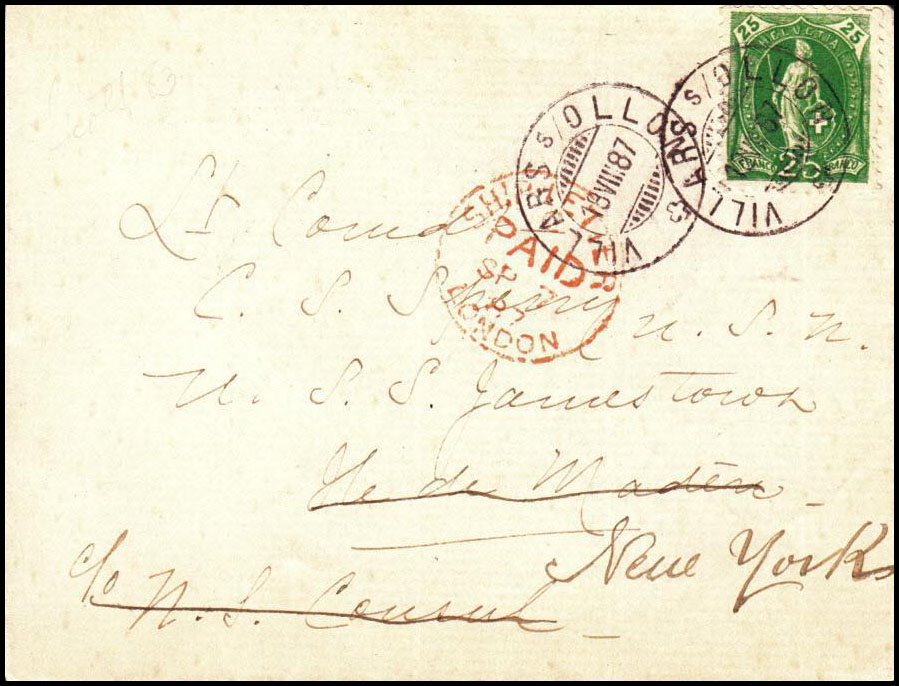 25 HELVETIA 25
FRANCO 25 FRANCO
VILLARS s/OLLON
VILLARS s/OLLON
18 VIII 87
PAID
SP 7
87
LONDON
Lt. Comd
C. S. Sperry U. S. N.
U. S. S. Jamestown
Ile de Madère
New York
c/o U. S. Consul